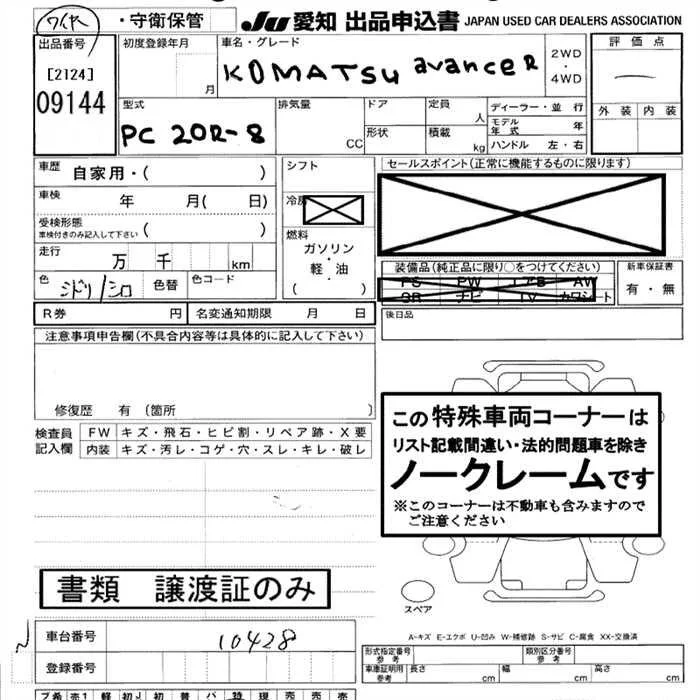 ワイド ・守衛保管 JU 愛知 出品申込書 JAPAN USED CAR DEALERS ASSOCIATION
出品番号 [2124] 09144
初度登録年月 月
車名・グレード KOMATSU avanceR
2WD ・ 4WD
評価点 ー
外装 内装
型式 PC 20R-8
排気量 CC
ドア 形状
定員 人
積載 kg
ディーラー・並 行
モデル年式 年
ハンドル 左・右
車歴 自家用・( )
車検 年 月( 日)
受検形態 車検付きのみ記入して下さい ( )
走行 万 千 km
色 ミドリ/シロ 色替 色コード
シフト
冷房
燃料 ガソリン ・ 軽・油 ( )
セールスポイント(正常に機能するものに限ります)
装備品(純正品に限り○をつけてください)
PS PW エアB AW
SR ナビ TV カワシート
新車保証書 有・無
R券 円 名変通知期限 月 日
後日品
注意事項申告欄(不具合内容等は具体的に記入して下さい)
修復歴 有 〔箇所 〕
検査員記入欄
FW キズ・飛石・ヒビ割・リペア跡・X要
内装 キズ・汚レ・コゲ・穴・スレ・キレ・破レ
この特殊車両コーナーは
リスト記載間違い・法的問題車を除き
ノークレームです
※このコーナーは不動車も含みますので
ご注意ください
書類 譲渡証のみ
スペア
A-キズ E-エクボ U-凹み W-補修跡 S-サビ C-腐食 XX-交換済
車台番号 10428
登録番号
形式指定番号 参考
類別区分番号 参考
車庫証明用 参考 長さ cm 幅 cm 高さ cm